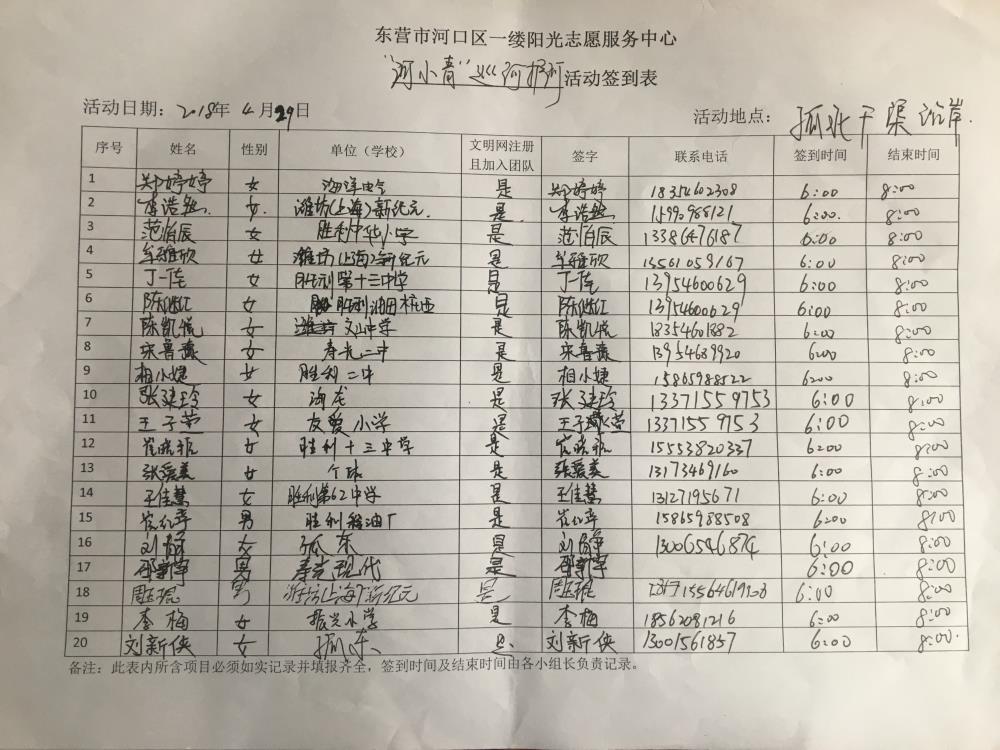 东营市河口区一缕阳光志愿服务中心
"河小青"巡河护河活动签到表
活动日期：2018年 4月29日 活动地点：孤北干渠沿岸.
序号 姓名 性别 单位（学校） 文明网注册且加入团队 签字 联系电话 签到时间 结束时间
1 郑婷婷 女 海洋电气 是 郑婷婷 18354602308 6:00 8:00
2 李浩然 女 潍坊(上海)新纪元 是 李浩然 15990988121 6:00 8:00
3 范佰辰 女 胜利中华小学 是 范佰辰 13386476187 6:00 8:00
4 牟雅欣 女 潍坊(上海)新纪元 是 牟雅欣 13561059167 6:00 8:00
5 丁一佳 女 胜利第十三中学 是 丁一佳 13954600629 6:00 8:00
6 女 胜利油田 是 13954600629 6:00 8:00
7 陈凯悦 女 文山中学 是 陈凯悦 18354601882 6:00 8:00
8 宋鲁 女 寿光二中 是 宋鲁 13954689920 6:00 8:00
9 相小婕 女 胜利二中 是 相小婕 15865988522 6:00 8:00
10 张建玲 女 海龙 是 张建玲 13371559753 6:00 8:00
11 王子荣 女 友爱小学 是 王子荣 13371559753 6:00 8:00
12 崔晓 女 胜利十三中学 是 崔晓 15553820337 6:00 8:00
13 张爱美 女 个体 是 张爱美 13173469160 6:00 8:00
14 王佳慧 女 胜利第62中学 是 王佳慧 13127195671 6:00 8:00
15 崔红军 男 胜利采油厂 是 崔红军 15865988508 6:00 8:00
16 刘静 女 孤东 是 刘静 13006546874 6:00 8:00
17 邵 男 寿光现代 是 邵 6:00 8:00
18 周琨 男 潍坊(上海)新纪元 是 周琨 6:00 8:00
19 李梅 女 振兴小学 是 李梅 18562081216 6:00 8:00
20 刘新侠 女 孤东 是 刘新侠 13001561857 6:00 8:00
备注：此表内所含项目必须如实记录并填报齐全，签到时间及结束时间由各小组长负责记录。